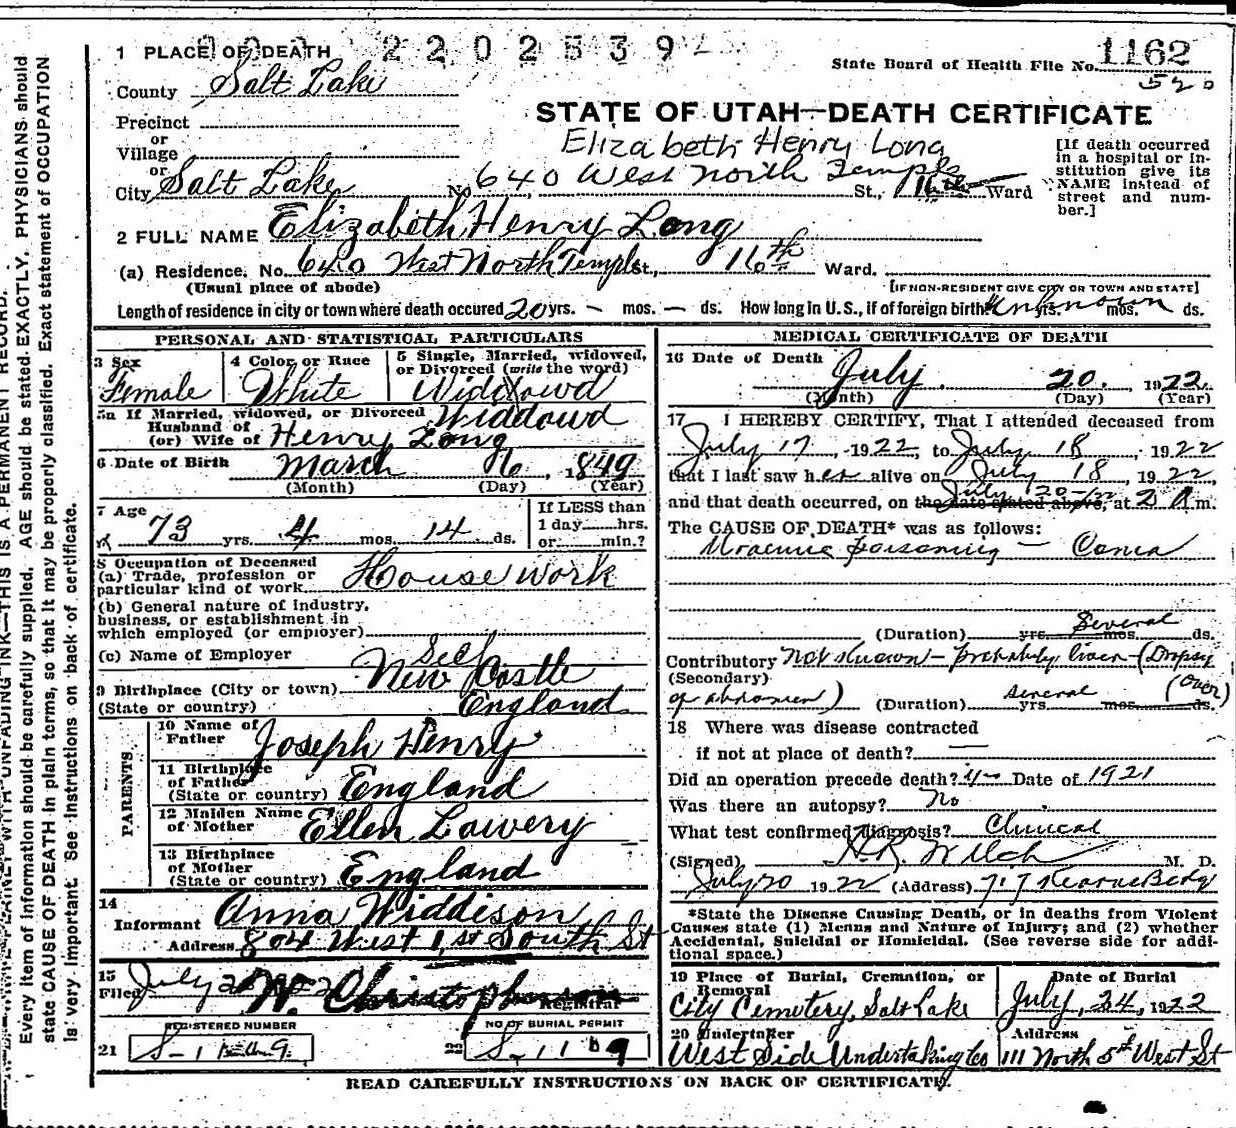 1 PLACE OF DEATH 2202539
State Board of Health File No. 1162
520
County Salt Lake
STATE OF UTAH—DEATH CERTIFICATE
Precinct
or
Village
or
Elizabeth Henry Long
[If death occurred in a hospital or institution give its NAME instead of street and number.]
City Salt Lake No. 640 West North Temple St., 16th Ward
2 FULL NAME Elizabeth Henry Long
(a) Residence. No. 640 West North Temple St., 16th Ward.
(Usual place of abode)
[IF NON-RESIDENT GIVE CITY OR TOWN AND STATE]
Length of residence in city or town where death occured 20 yrs. — mos. — ds. How long in U.S., if of foreign birth? Unknown yrs. mos. ds.
PERSONAL AND STATISTICAL PARTICULARS
3 Sex
Female
4 Color or Race
White
5 Single, Married, widowed, or Divorced (write the word)
Widdowd
5a If Married, widowed, or Divorced Widdowd
Husband of
(or) Wife of Henry Long
6 Date of Birth March 6, 1849
(Month) (Day) (Year)
7 Age
73 yrs. 4 mos. 14 ds.
If LESS than 1 day hrs. or min.?
8 Occupation of Deceased
(a) Trade, profession or particular kind of work House work
(b) General nature of Industry, business, or establishment in which employed (or employer)
(c) Name of Employer Self
9 Birthplace (City or town) New Castle
(State or country) England
PARENTS
10 Name of Father Joseph Henry
11 Birthplace of Father (State or country) England
12 Maiden Name of Mother Ellen Lawery
13 Birthplace of Mother (State or country) England
14
Informant Anna Widdison
Address 804 West 1st South St
15
Filed July W. Christopherson
Registrar
REGISTERED NUMBER
21
NO OF BURIAL PERMIT
22
MEDICAL CERTIFICATE OF DEATH
16 Date of Death July 20, 1922
(Month) (Day) (Year)
17 I HEREBY CERTIFY, That I attended deceased from
July 17, 1922, to July 18, 1922
that I last saw her alive on July 18, 1922,
and that death occurred, on the date stated above, July 20 at 2 A m.
The CAUSE OF DEATH* was as follows:
Uraemic poisoning — Coma
Several
(Duration) yrs. mos. ds.
Contributory Not known — probably liver — (Dropsy
(Secondary)
of abdomen) (Duration) several yrs. mos. ds. (over)
18 Where was disease contracted
if not at place of death? —
Did an operation precede death? Date of 1921
Was there an autopsy? No
What test confirmed diagnosis? Clinical
(Signed) M. D.
July 20 1922 (Address)
*State the Disease Causing Death, or in deaths from Violent Causes state (1) Means and Nature of Injury; and (2) whether Accidental, Suicidal or Homicidal. (See reverse side for additional space.)
19 Place of Burial, Cremation, or Removal
City Cemetery, Salt Lake
Date of Burial
July, 24, 1922
20 Undertaker
West Side Undertaking Co
Address
111 North 5th West St
READ CAREFULLY INSTRUCTIONS ON BACK OF CERTIFICATE.
THIS IS A PERMANENT RECORD.
Every item of information should be carefully supplied. AGE should be stated EXACTLY. PHYSICIANS should
state CAUSE OF DEATH in plain terms, so that it may be properly classified. Exact statement of OCCUPATION
is very important. See instructions on back of certificate.